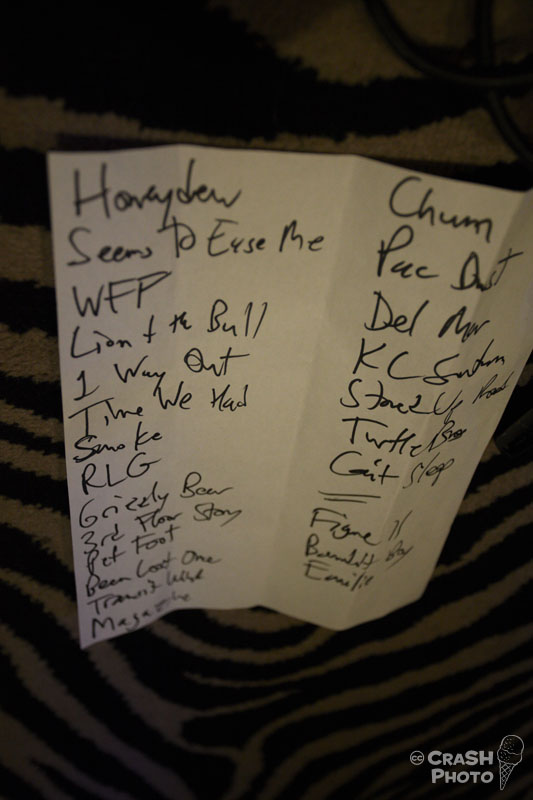 Honeydew
Seems To Ease Me
WFP
Lion & the Bull
1 Way Out
Time We Had
Smoke
RLG
Grizzly Bear
3rd Floor Story
Pet Foot
Been Lost One
Magazine
Chum
Pac Dust
Del Mar
KC Southern
Stoned Up Road
Turtle
Can't Sleep
Figure
Emilie
cc CRASH
PHOTO